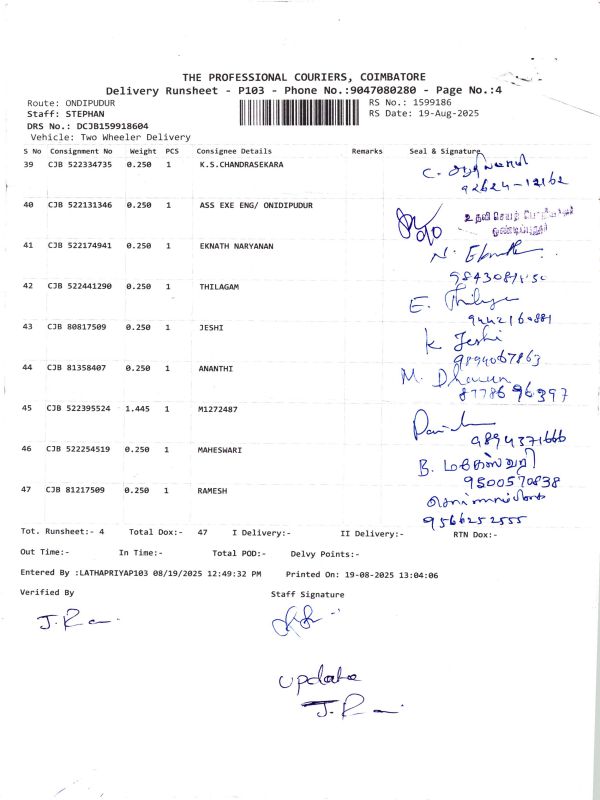 THE PROFESSIONAL COURIERS, COIMBATORE
Delivery Runsheet - P103 - Phone No.:9047080280 - Page No.:4
Route: ONDIPUDUR
Staff: STEPHAN
DRS No.: DCJB159918604
Vehicle: Two Wheeler Delivery
RS No.: 1599186
RS Date: 19-Aug-2025
S No Consignment No Weight PCS Consignee Details Remarks Seal & Signature
39 CJB 522334735 0.250 1 K.S.CHANDRASEKARA
92624-12162
40 CJB 522131346 0.250 1 ASS EXE ENG/ ONIDIPUDUR
உதவி செயற் பொறியாளர்
ஒண்டிப்புதூர்
41 CJB 522174941 0.250 1 EKNATH NARYANAN
42 CJB 522441290 0.250 1 THILAGAM
E. Thilaga
9442160881
43 CJB 80817509 0.250 1 JESHI
K Jeshi
9894067863
44 CJB 81358407 0.250 1 ANANTHI
M. Dharun
87786 96397
45 CJB 522395524 1.445 1 M1272487
9894371666
46 CJB 522254519 0.250 1 MAHESWARI
B. மகேஸ்வரி
9500570838
47 CJB 81217509 0.250 1 RAMESH
9566252555
Tot. Runsheet:- 4 Total Dox:- 47 I Delivery:- II Delivery:- RTN Dox:-
Out Time:- In Time:- Total POD:- Delvy Points:-
Entered By :LATHAPRIYAP103 08/19/2025 12:49:32 PM Printed On: 19-08-2025 13:04:06
Verified By Staff Signature
update